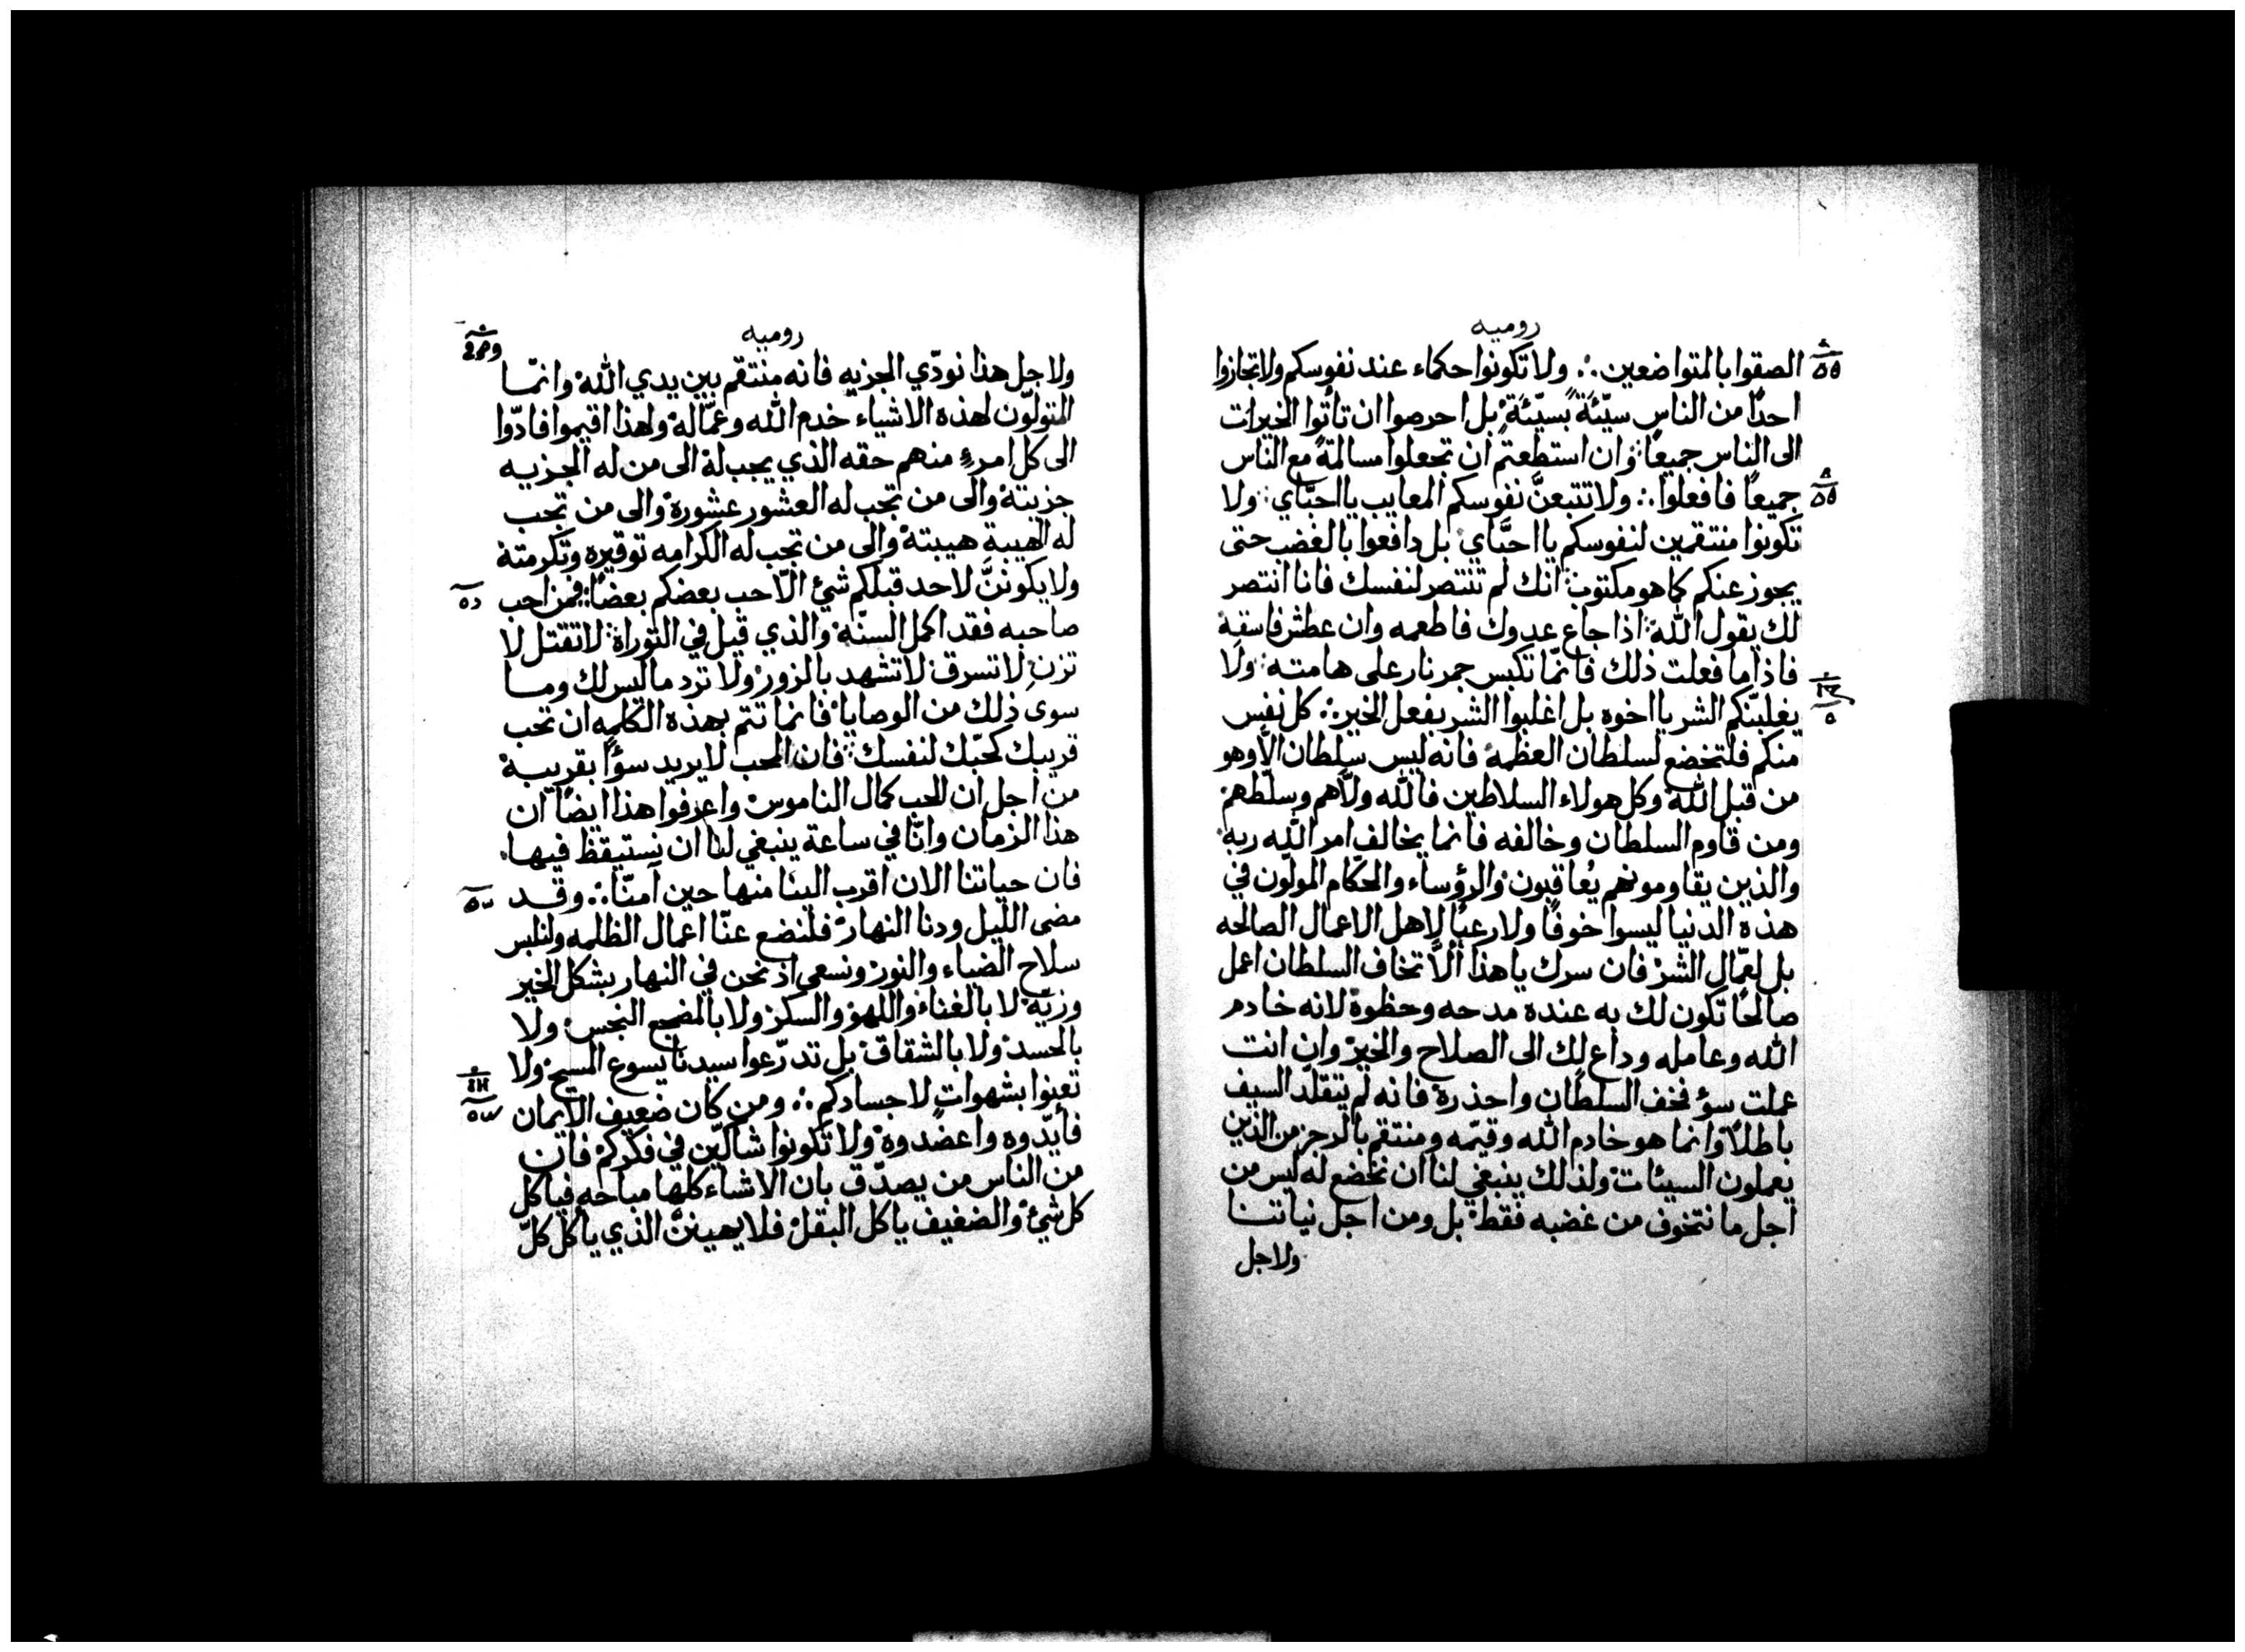 روميه
الصقوا بالمتواضعين ∴ ولا تكونوا حكماء عند نفوسكم ولا تجازوا
احدًا من الناس سيّئةً بسيّئةٍ بل احرصوا ان تأتوا الخيرات
الى الناس جميعًا وان استطعتم ان تجعلوا مسالمةً مع الناس
جميعًا فافعلوا ∴ ولا تتبعنَّ نفوسكم المعايب يا احبّاي ولا
تكونوا منتقمين لنفوسكم يا احبَّاي بل دافعوا بالغضب حتى
يجوز عنكم كما هو مكتوب انك لم تنتصر لنفسك فانا انتصر
لك يقول الله اذا جاع عدوك فاطعمه وان عطش فاسقه
فاذا ما فعلت ذلك فانمّا تكبس جمر نار على هامته ولا
يغلبنّكم الشر يا اخوه بل اغلبوا الشر بفعل الخير ∴ كل نفس
منكم فلتخضع لسلطان العظمه فانه ليس سلطان الّا وهو
من قبل الله وكل هولاء السلاطين فالله ولّاهم وسلّطهم
ومن قاوم السلطان وخالفه فانما يخالف امر الله ربه
والذين يقاومونهم يُعاقبون والرؤساء والحكّام المولّون في
هذه الدنيا ليسوا خوفًا ولا رعبًا لاهل الاعمال الصالحه
بل لعمّال الشر فان سرك يا هذا ألّا تخاف السلطان اعمل
صالحًا تكون لك به عنده مدحه وحظوة لانه خادم
الله وعامله وداعٍ لك الى الصلاح والخير وان انت
عملت سوٴ فخف السلطان واحذره فانه لم يتقلّد السيف
باطلًا وانما هو خادم الله وقيّمه ومنتقم بالرجز من الذين
يعملون السيئات ولذلك ينبغي لنا ان نخضع له ليس من
اجل ما نتخوف من غضبه فقط بل ومن اجل نياتنا
ولاجل
روميه
ولاجل هذا نودّي الجزيه فانه منتقم بين يدي الله وانمّا
المتولّون لهذه الاشياء خدم الله وعمّاله ولهذا اقيموا فادّوا
الى كل امرءٍ منهم حقه الذي يجب له الى من له الجزيه
جزيته والى من تجب له العشور عشوره والى من تجب
له الهيبة هيبته والى من تجب له الكرامه توقيره وتكرمته
ولا يكوننَّ لاحد قبلكم شيٴ الّا حب بعضكم بعضًا فمن احب
صاحبه فقد اكمل السنّه والذي قيل في التوراة لا تقتل لا
تزنِ لا تسرق لا تشهد بالزور ولا ترد ما ليس لك وما
سوى ذلك من الوصايا فانما تتم بهذه الكلمه ان تحب
قريبك كحبّك لنفسك فان المحب لا يريد سوٴًا بقريبه
من اجل ان الحب كمال الناموس واعرفوا هذا ايضًا ان
هذا الزمان وانّا في ساعة ينبغي لنا ان نستيقظ فيها
فان حياتنا الان اقرب الينا منها حين آمنّا ∴ وقد
مضى الليل ودنا النهار فلنضع عنّا اعمال الظلمه ولنلبس
سلاح الضياء والنور ونسعى اذ نحن في النهار بشكل الخير
وزيّه لا بالغناء واللهو والسكر ولا بالمضجع النجس ولا
بالحسد ولا بالشقاق بل تدرّعوا سيدنا يسوع المسيح ولا
تعبوا بشهوات لاجسادكم ∴ ومن كان ضعيف الايمان
فأيّدوه واعضدوه ولا تكونوا شاكّين في فكركم فان
من الناس من يصدّق بان الاشياء كلها مباحه فياكل
كل شيٴ والضعيف ياكل البقل فلا يهيننّ الذي ياكل كلّ